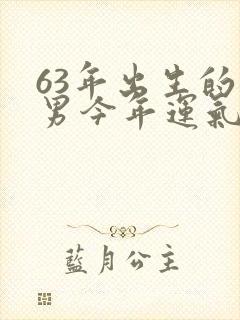 63年出生的
男今年運氣
藍月公主